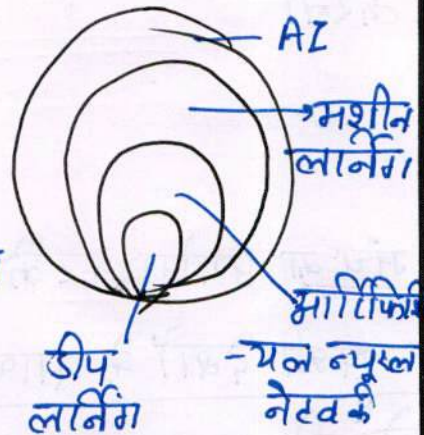 AI
मशीन
लार्नेंग
आर्टिफिशि
-यल न्यूरल
नेटवर्क
डीप
लर्निंग